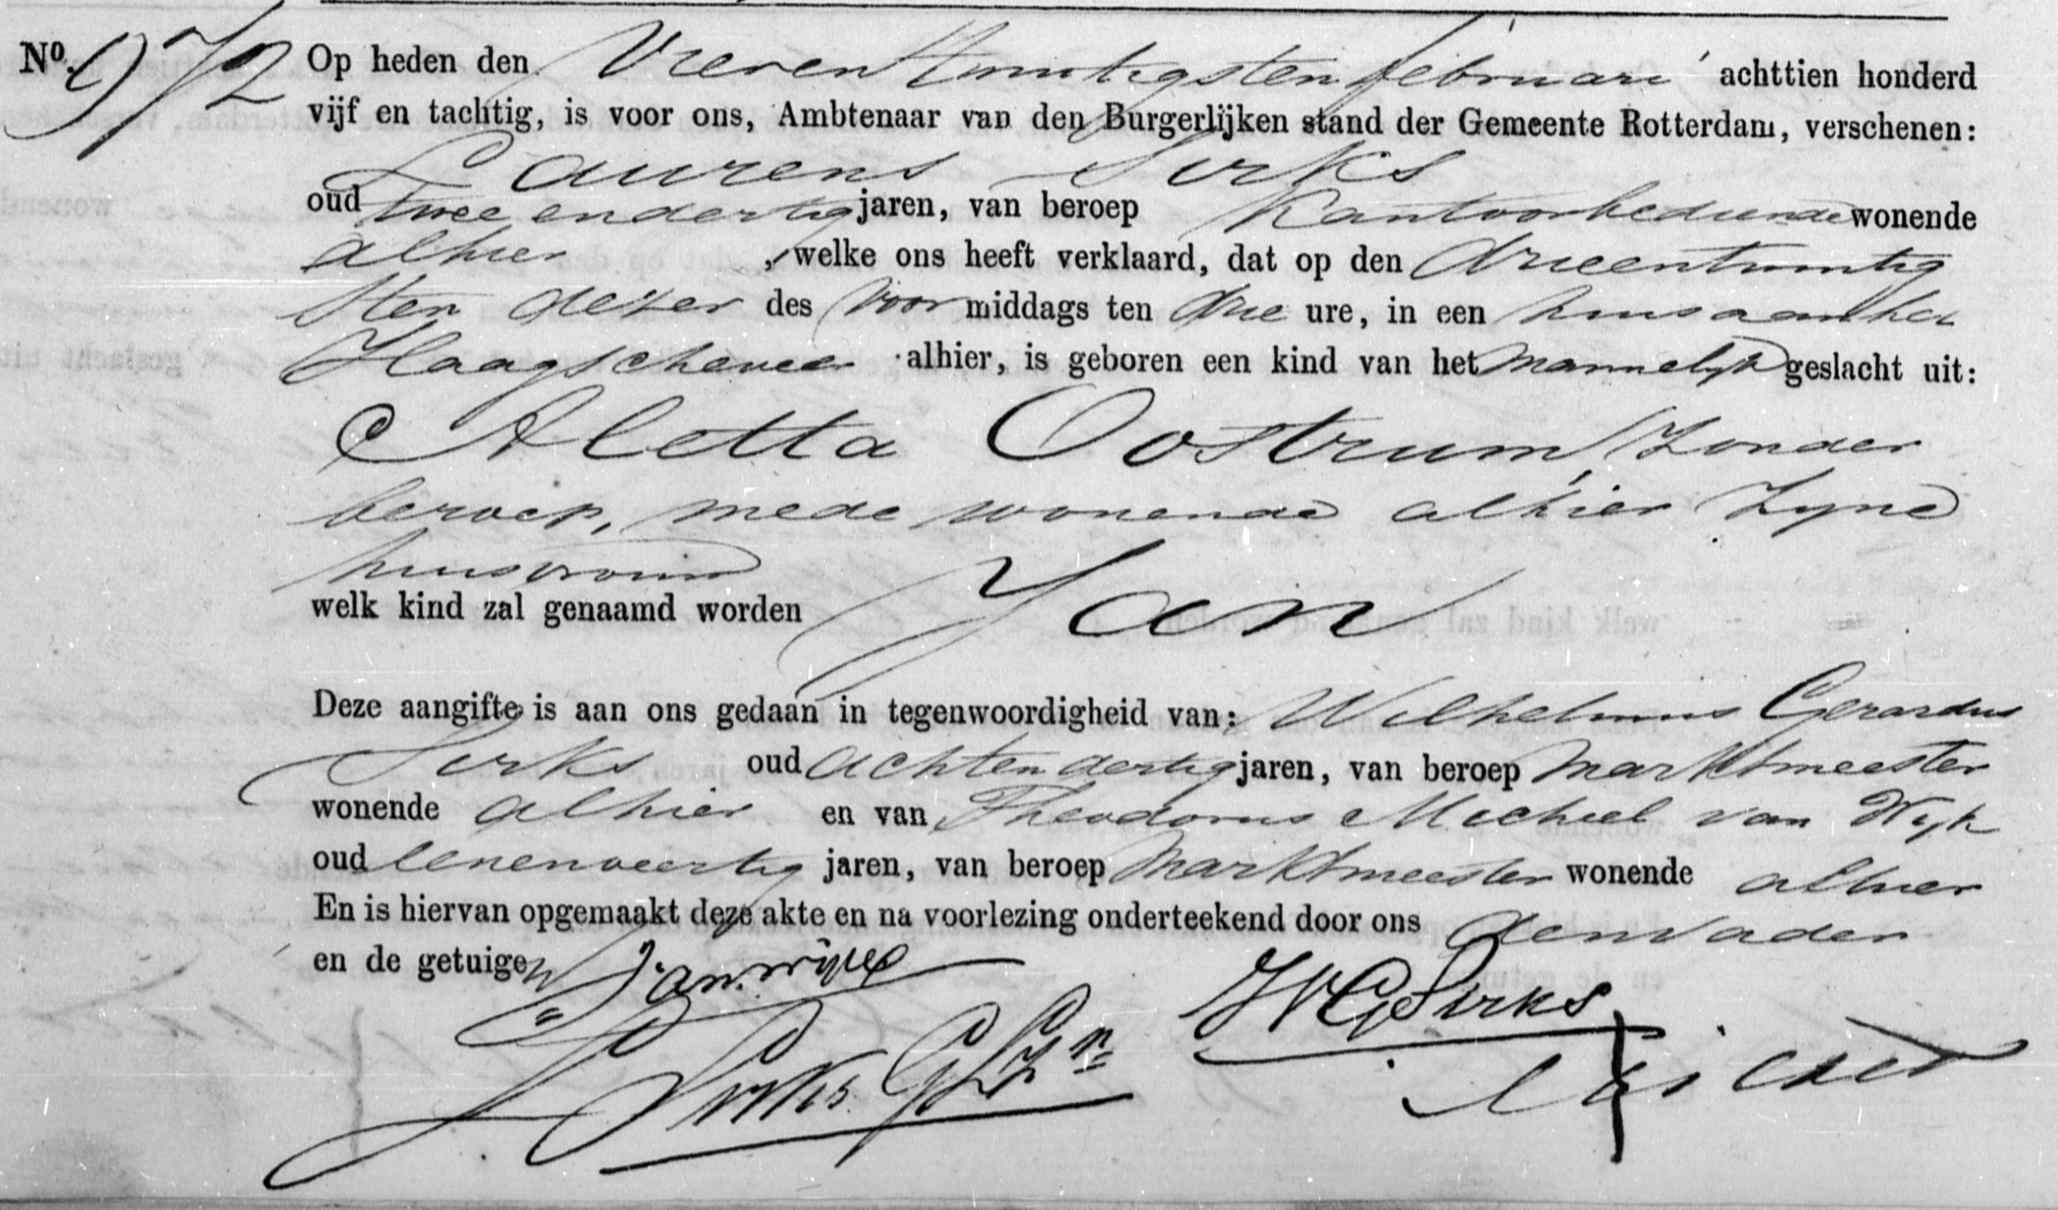 No. 972 Op heden den Vierentwintigsten februari achttien honderd
vijf en tachtig, is voor ons, Ambtenaar van den Burgerlijken stand der Gemeente Rotterdam, verschenen:
Laurens Sirks
oud twee en dertig jaren, van beroep Kantoorbediende wonende
alhier , welke ons heeft verklaard, dat op den drieentwintig
sten dezer des voor middags ten drie ure, in een huis aan het
Haagscheveer alhier, is geboren een kind van het mannelijk geslacht uit:
Aletta Oostrum, zonder
beroep, mede wonende alhier zyne
huisvrouw
welk kind zal genaamd worden Jan
Deze aangifte is aan ons gedaan in tegenwoordigheid van: Wilhelmus Gerardus
Sirks oud achtendertig jaren, van beroep marktmeester
wonende alhier en van Theodorus Michiel van Wijk
oud eenenveertig jaren, van beroep marktmeester wonende alhier
En is hiervan opgemaakt deze akte en na voorlezing onderteekend door ons den vader
en de getuigen
WG Sirks
L Sirks GLzn